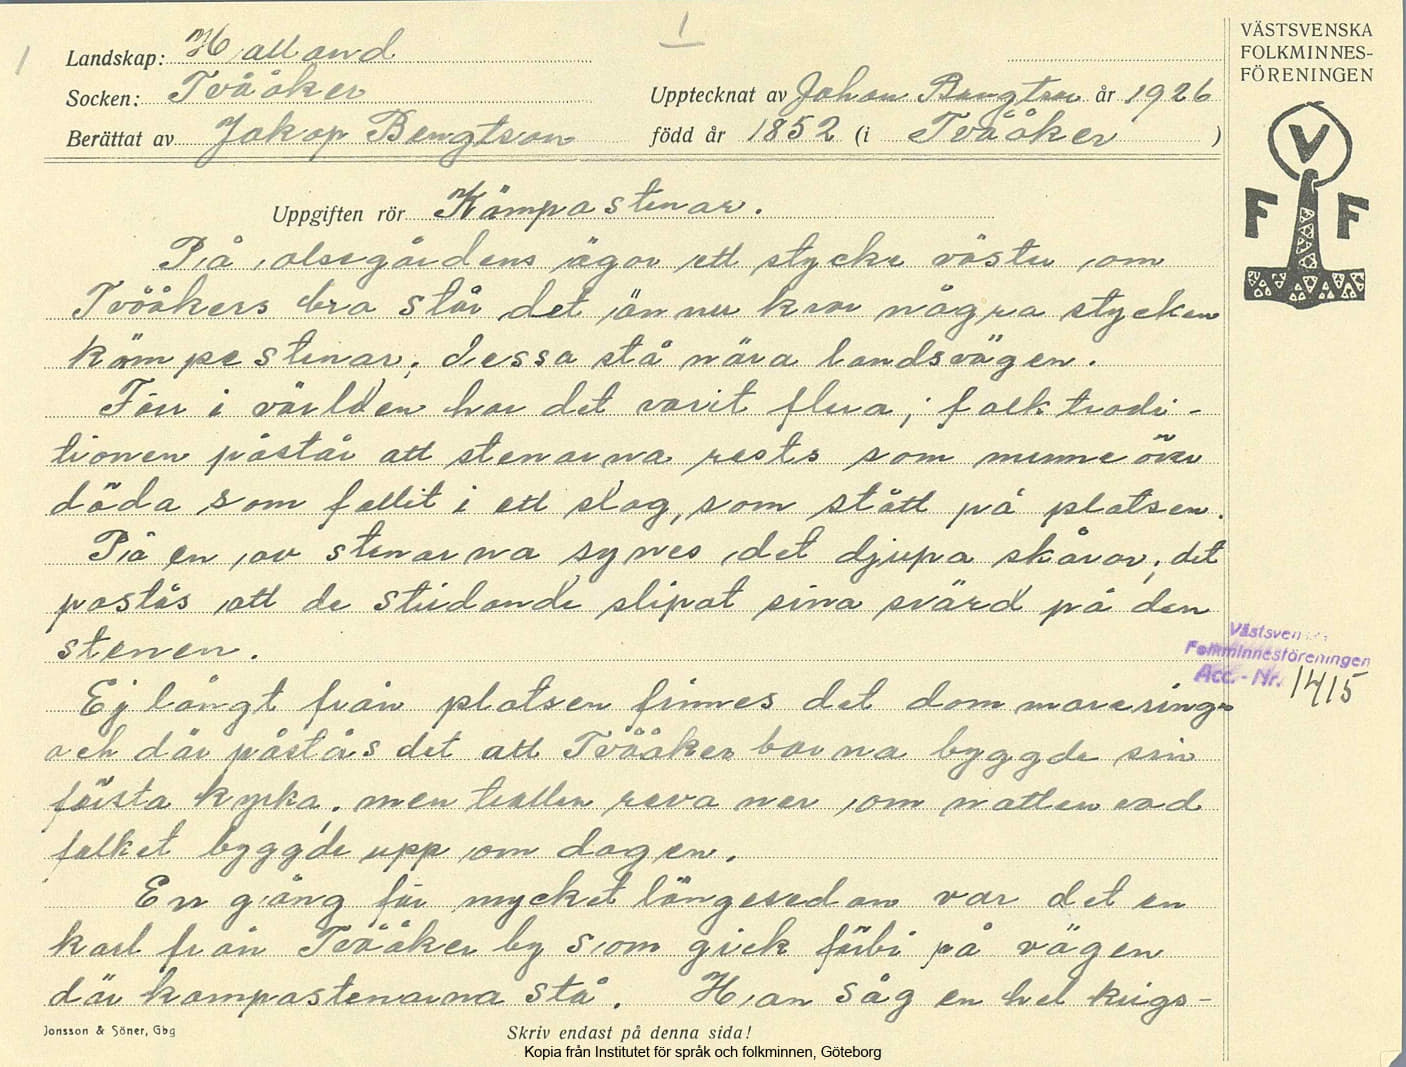 1
1
Landskap: Halland
Socken: Tvååker
Upptecknat av Johan Bengtson år 1926
Berättat av Jakop Bengtson född år 1852 (i Tvååker)
VÄSTSVENSKA
FOLKMINNES-
FÖRENINGEN
V
F F
Uppgiften rör Kämpastenar.
På olsegårdens ägor ett stycke väster om
Tvååkers bra står det ännu kvar några stycken
kämpestenar, dessa stå nära landsvägen.
Förr i världen har det varit flera; folktradi-
tionen påstår att stenarna rests som minne över
döda som fallit i ett slag, som stått på platsen.
På en av stenarna synes det djupa skåror, det
påstås att de stridande slipat sina svärd på den
stenen.
Ej långt från platsen finnes det dommarering
och där påstås det att Tvååker borna byggde sin
första kyrka, men trollen reva ner om natten vad
folket byggde upp om dagen.
En gång för mycket längesedan var det en
karl från Tvååker by som gick förbi på vägen
där kampastenarna stå. Han såg en hel krigs-
Västsvenska
Folkminnesföreningen
Acc.-Nr. 1415
Jonsson & Söner, Gbg
Skriv endast på denna sida!
Kopia från Institutet för språk och folkminnen, Göteborg